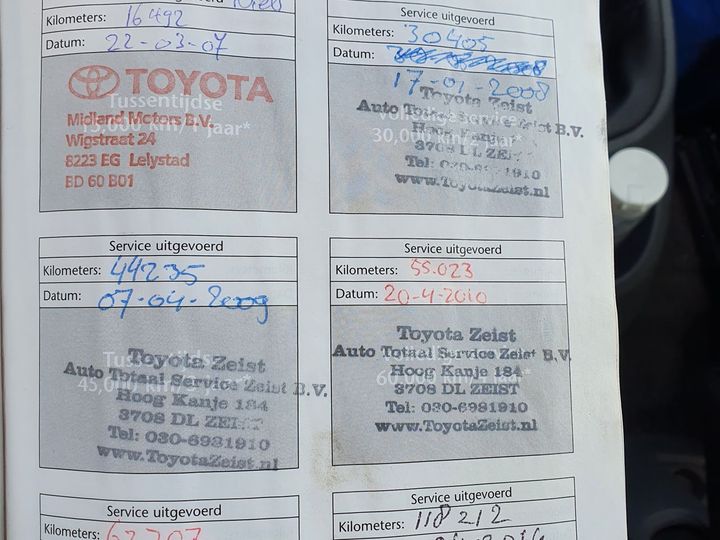 Kilometers: 16492
Datum: 22-03-07
TOYOTA
Tussentijdse
Midland Motors B.V.
15,000 km/1 jaar*
Wigstraat 24
8223 EG Lelystad
BD 60 B01
Service uitgevoerd
Kilometers: 30405
Datum:
17-01-2008
Toyota Zeist
Volledige service
Auto Totaal Service Zeist B.V.
30,000 km/2 jaar*
Hoog Kanje
3708 DL ZEIST
www.ToyotaZeist.nl
Service uitgevoerd
Kilometers: 44235
Datum: 07-04-2009
Tussentijdse
Toyota Zeist
Auto Totaal Service Zeist B.V.
45,000 km/ jaar*
Hoog Kanje 184
3708 DL ZEIST
Tel: 030-6981910
www.ToyotaZeist.nl
Service uitgevoerd
Kilometers: 55.023
Datum: 20-4-2010
Toyota Zeist
Auto Totaal Service Zeist B.V.
60,000 km/ jaar*
Hoog Kanje 184
3708 DL ZEIST
Tel: 030-6981910
www.ToyotaZeist.nl
Service uitgevoerd
Kilometers: 62707
Service uitgevoerd
Kilometers: 118212